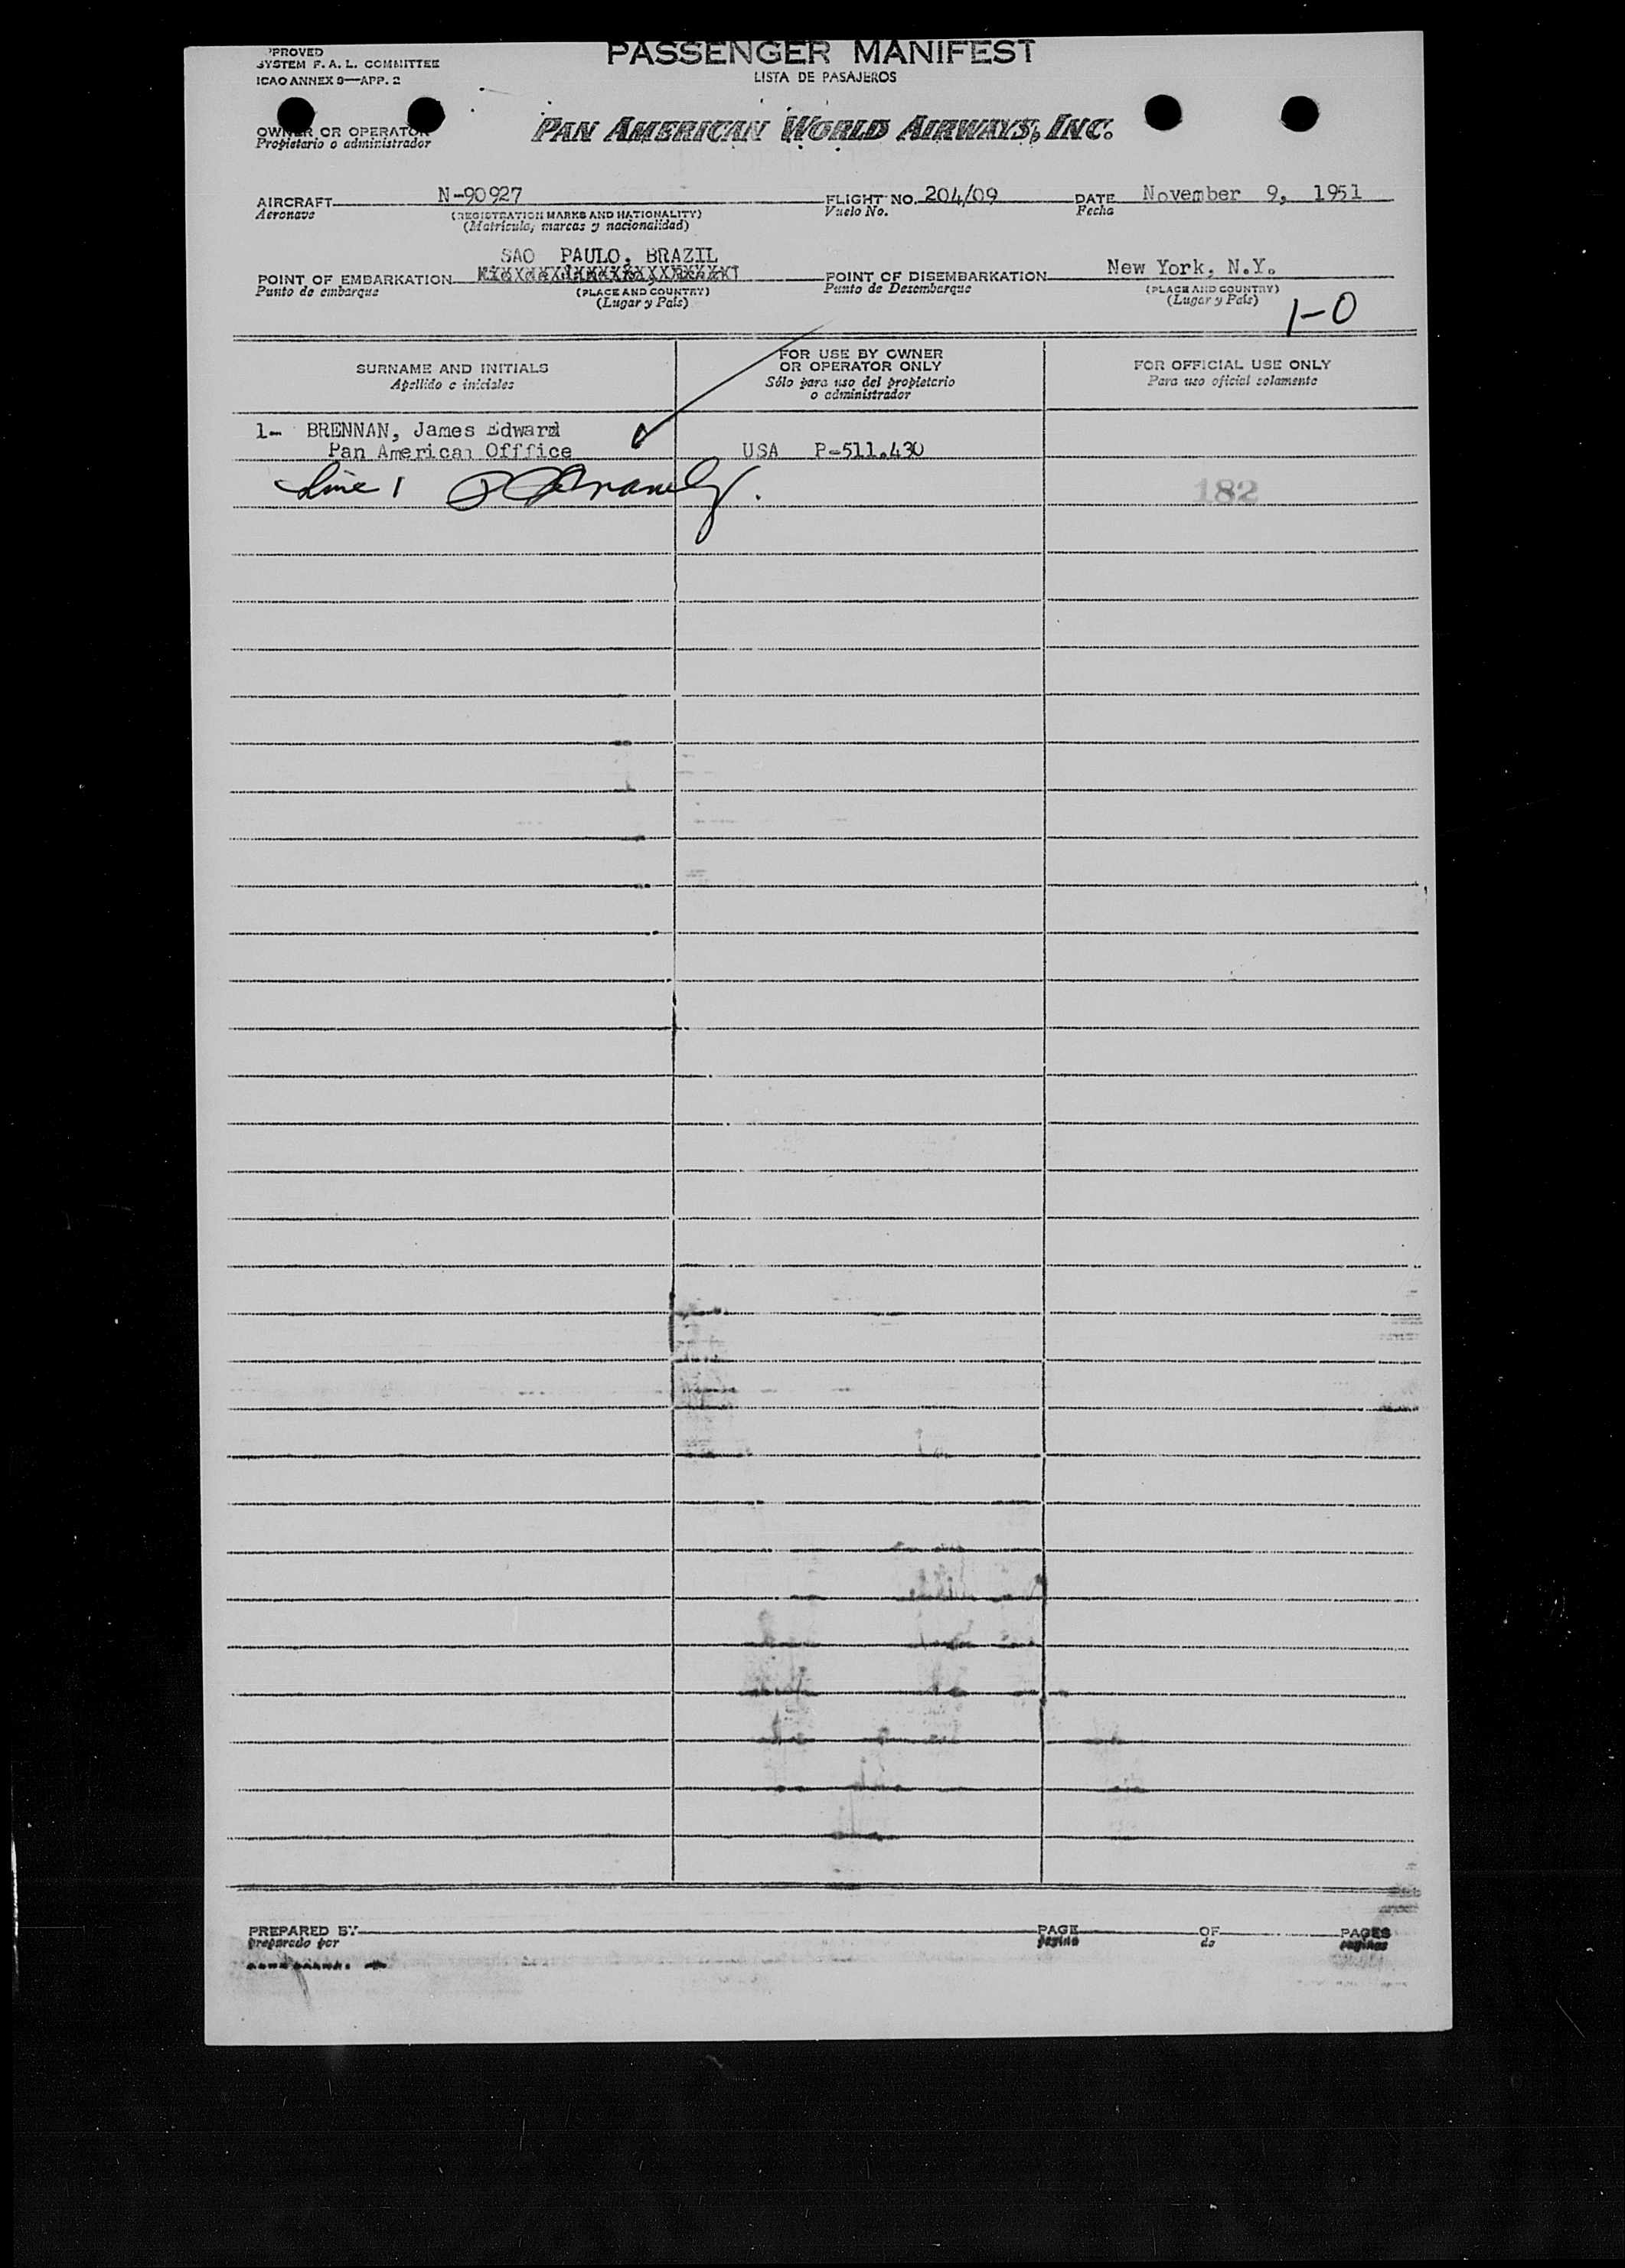 PROVED
SYSTEM F. A. L. COMMITTEE
ICAO ANNEX 9—APP. 2
PASSENGER MANIFEST
LISTA DE PASAJEROS
OWNER OR OPERATOR
Propietario o administrador
PAN AMERICAN WORLD AIRWAYS, INC.
AIRCRAFT N-90927 FLIGHT NO. 204/09 DATE November 9, 1951
Aeronave (REGISTRATION MARKS AND NATIONALITY) Vuelo No. Fecha
(Matrícula, marcas y nacionalidad)
SAO PAULO, BRAZIL
POINT OF EMBARKATION POINT OF DISEMBARKATION New York, N.Y.
Punto de embarque (PLACE AND COUNTRY) Punto de Desembarque (PLACE AND COUNTRY)
(Lugar y País) (Lugar y País)
1-0
SURNAME AND INITIALS
Apellido e iniciales
FOR USE BY OWNER
OR OPERATOR ONLY
Sólo para uso del propietario
o administrador
FOR OFFICIAL USE ONLY
Para uso oficial solamente
1- BRENNAN, James Edward
Pan American Offfice USA P-511.430
Line 1
182
PREPARED BY PAGE OF PAGES
preparado por página de páginas